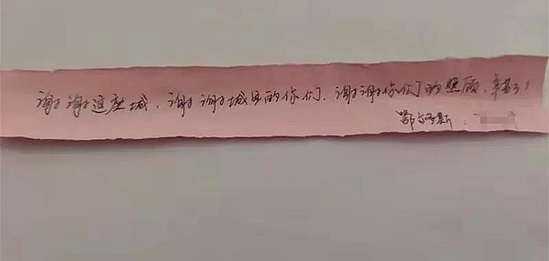 谢谢这座城，谢谢城里的你们，谢谢你们的照顾，辛苦了！
鄂尔多斯：